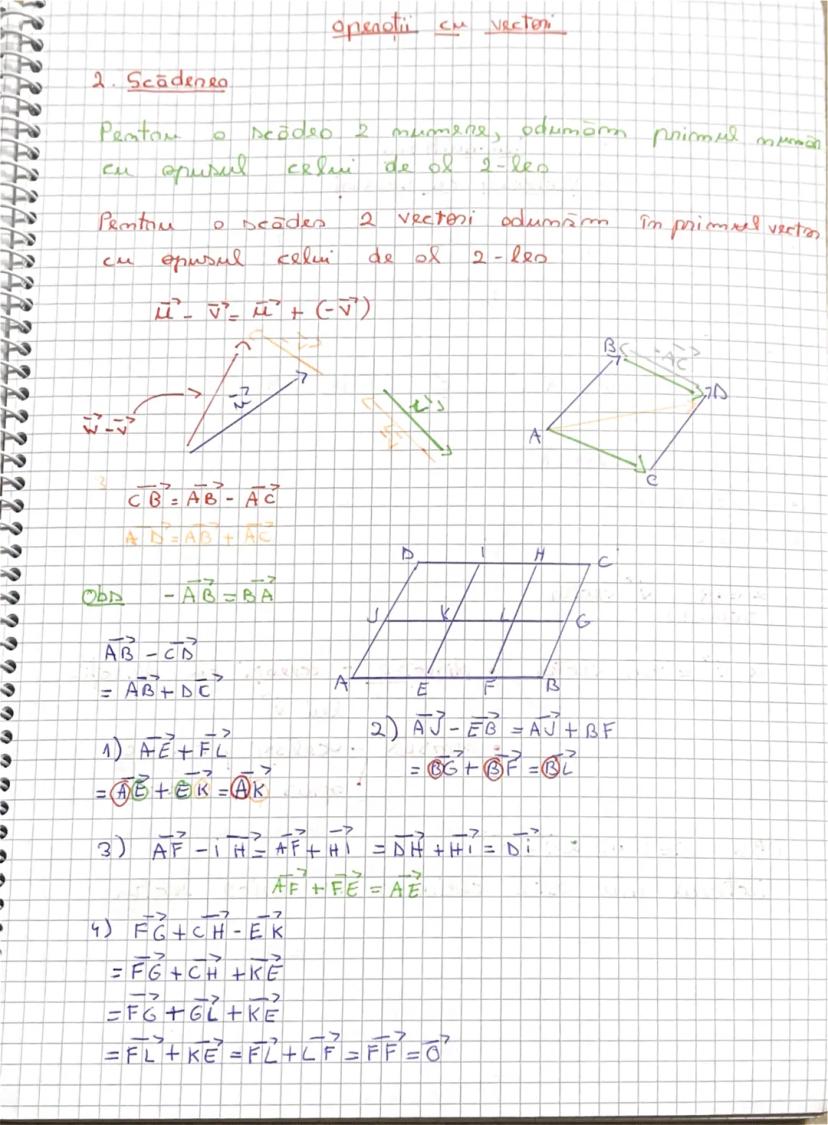 Operații cu vectori
2. Scăderea
Pentru a scădea 2 numere, adunăm primul număr
cu opusul celui de al 2-lea
Pentru a scădea 2 vectori adunăm în primul vector
cu opusul celui de al 2-lea
u⃗ - v⃗ = u⃗ + (-v⃗)
B -AC⃗
D
A
C
CB⃗ = AB⃗ - AC⃗
AD⃗ = AB⃗ + AC⃗
D I H C
Obs -AB⃗ = BA⃗
J K L G
AB⃗ - CD⃗
= AB⃗ + DC⃗
A E F B
1) AE⃗ + FL⃗
= AE⃗ + EK⃗ = AK⃗
2) AJ⃗ - EB⃗ = AJ⃗ + BF
= BG⃗ + BF⃗ = BL⃗
3) AF⃗ - iH⃗ = AF⃗ + Hi⃗ = DH⃗ + Hi⃗ = Di⃗
AF⃗ + FE⃗ = AE⃗
4) FG⃗ + CH⃗ - EK⃗
= FG⃗ + CH⃗ + KE⃗
= FG⃗ + GL⃗ + KE⃗
= FL⃗ + KE⃗ = FL⃗ + LF⃗ = FF⃗ = O⃗